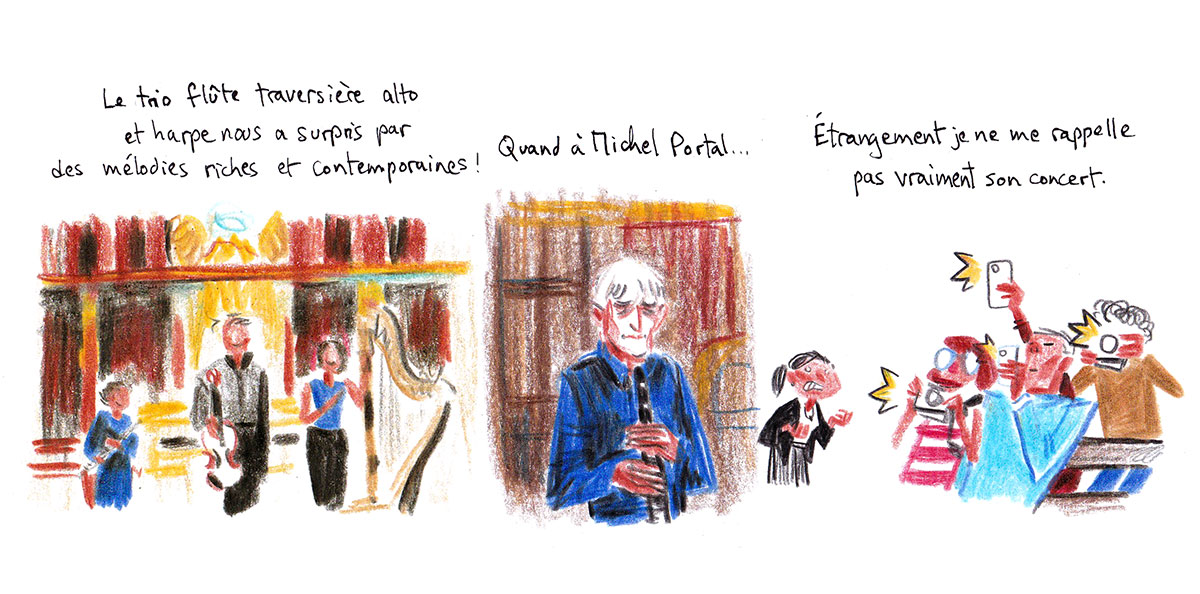 Le trio flûte traversière alto
et harpe nous a surpris par
des mélodies riches et contemporaines !
Quand à Michel Portal...
Étrangement je ne me rappelle
pas vraiment son concert.